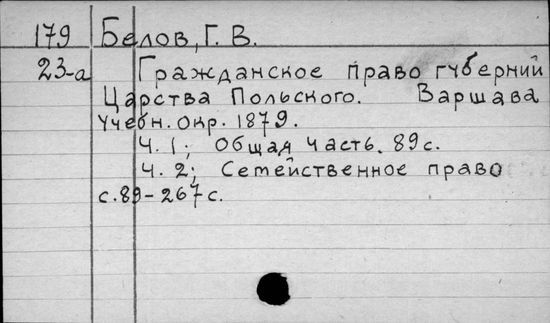 179 Белов, Г. В.
23-а Гражданское право губерний
Царства Польского. Варшава
Учебн. окр. 1879.
Ч. 1; Общая часть. 89 с.
Ч. 2; Семейственное право
с. 89-267 с.